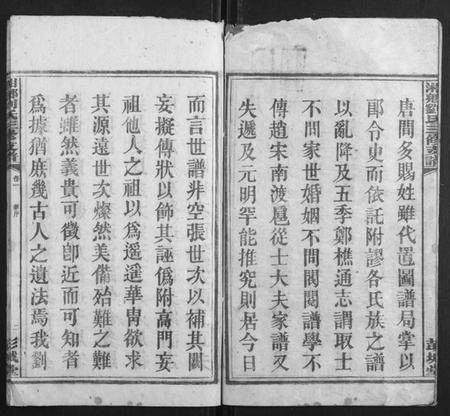 湘鄉劉氏三修支譜
唐間多賜姓雖代置圖譜局掌以
郎令史而依託附謬各氏族之譜
以亂降及五季鄭樵通志謂取士
不問家世婚姻不問閥閱譜學不
傳趙宋南渡扈從士大夫家譜又
失遞及元明罕能推究則居今日
彭城堂
而言世譜非空張世次以補其闕
妄擬傳狀以飾其誣偽附高門妄
祖他人之祖以為遥遥華冑欲求
其源遠世次燦然美備殆難之難
者雖然義貴可徵即近而可知者
為據猶庶幾古人之遺法焉我劉
湘鄉劉氏三修支譜
卷一
二
彭城堂